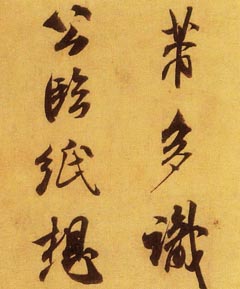 芾多識
公臨紙想